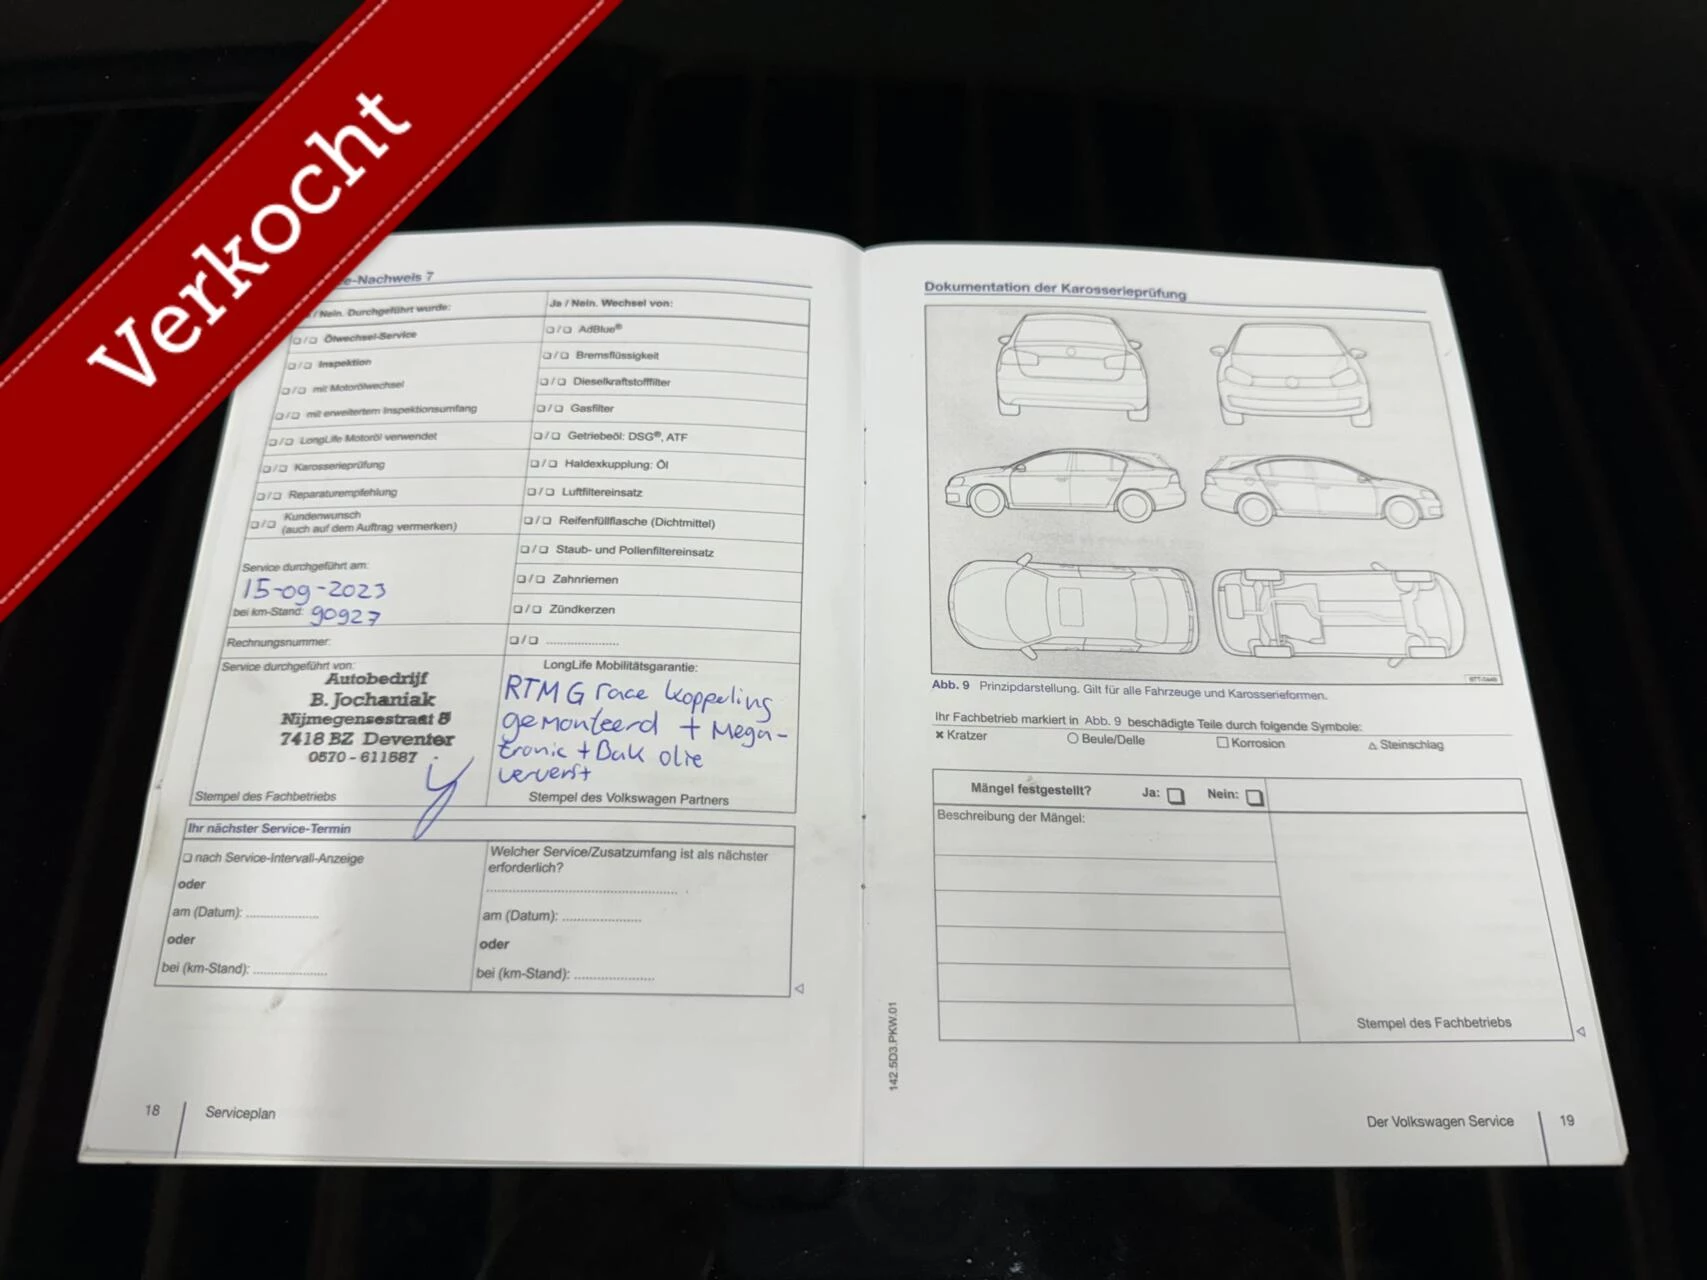 Verkocht
e-Nachweis 7
/ Nein. Durchgeführt wurde:
Ja / Nein. Wechsel von:
❑/❑ Ölwechsel-Service
❑/❑ AdBlue®
❑/❑ Inspektion
❑/❑ Bremsflüssigkeit
❑/❑ mit Motorölwechsel
❑/❑ Dieselkraftstofffilter
❑/❑ mit erweitertem Inspektionsumfang
❑/❑ Gasfilter
❑/❑ LongLife Motoröl verwendet
❑/❑ Getriebeöl: DSG®, ATF
❑/❑ Karosserieprüfung
❑/❑ Haldexkupplung: Öl
❑/❑ Reparaturempfehlung
❑/❑ Luftfiltereinsatz
❑/❑ Kundenwunsch
(auch auf dem Auftrag vermerken)
❑/❑ Reifenfüllflasche (Dichtmittel)
❑/❑ Staub- und Pollenfiltereinsatz
Service durchgeführt am:
15-09-2023
❑/❑ Zahnriemen
bei km-Stand: 90927
❑/❑ Zündkerzen
Rechnungsnummer:
❑/❑ ....................
Service durchgeführt von:
Autobedrijf
B. Jochaniak
Nijmegensestraat 8
7418 BZ Deventer
0570 - 611587
Stempel des Fachbetriebs
LongLife Mobilitätsgarantie:
RTMG race koppeling
gemonteerd + Mega-
tronic + Bak olie
ververst
Stempel des Volkswagen Partners
Ihr nächster Service-Termin
❑ nach Service-Intervall-Anzeige
oder
am (Datum): ....................
oder
bei (km-Stand): ....................
Welcher Service/Zusatzumfang ist als nächster
erforderlich?
..................................................
am (Datum): ....................
oder
bei (km-Stand): ....................
18
Serviceplan
Dokumentation der Karosserieprüfung
Abb. 9 Prinzipdarstellung. Gilt für alle Fahrzeuge und Karosserieformen.
Ihr Fachbetrieb markiert in Abb. 9 beschädigte Teile durch folgende Symbole:
× Kratzer
○ Beule/Delle
□ Korrosion
△ Steinschlag
Mängel festgestellt?
Ja: ❑
Nein: ❑
Beschreibung der Mängel:
Stempel des Fachbetriebs
142.5D3.PKW.01
Der Volkswagen Service
19